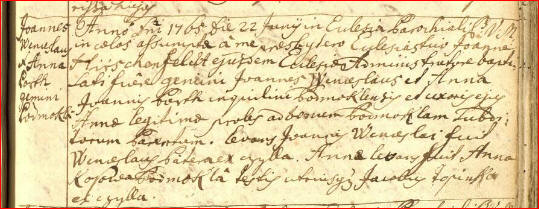 Joannes
Wencslaus
et Anna
Barth
gemini
Podmokl:
Anno Dni 1765 Die 22 Junÿ in Ecclesia Parochiali B: V: M:
in cœlos assumptæ a me Presbÿtero Ecclesiastico Joanne
Hirschenfeldt ejusdem Ecclesiæ Administratore bapti-
zati fuere gemini Joannes Wenceslaus et Anna
Joannis Barth inquilini Podmoklensis et uxoris ejus
Annæ legitimæ proles ad domum Podmoklam
torum parentum. Levans Joannis Wenceslai fuit
Wenceslaus Patera ex Zÿlla. Annæ levans fuit Anna
Podmoklâ testis utriusq; Jacobus Topinka
ex Zÿlla.